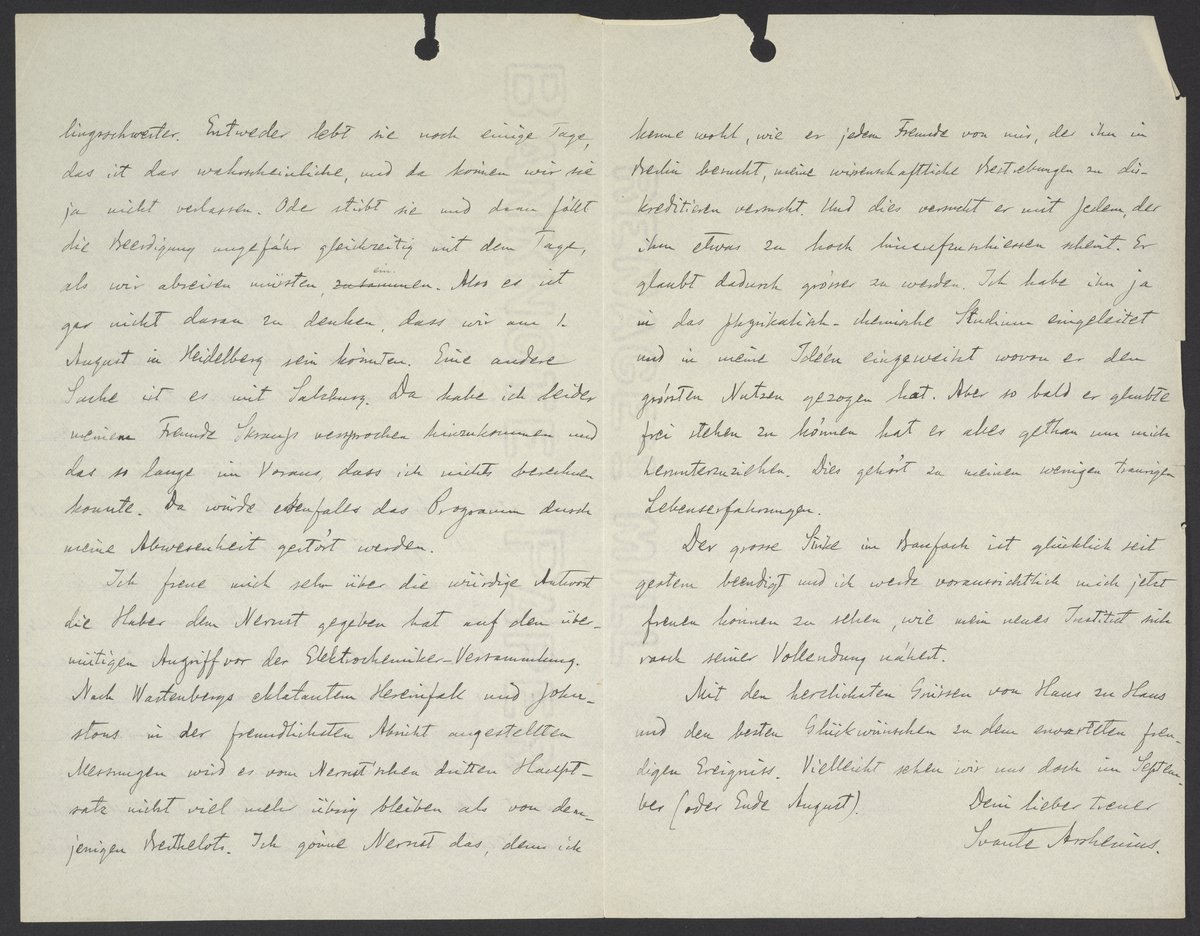 lingsschwester. Entweder lebt sie noch einige Tage,
das ist das wahrscheinliche, und da können wir sie
ja nicht verlassen. Ode stirbt sie und dann fällt
die Beerdigung ungefähr gleichzeitig mit dem Tage,
als wir abreisen müssten, zusammen. ein. Also es ist
gar nicht daran zu denken, dass wir am 1.
August in Heidelberg sein könnten. Eine andere
Sache ist es mit Salzburg. Da habe ich leider
meinem Freunde Skraup versprochen hinzukommen und
das so lange im Voraus dass ich nichts berechnen
konnte. Da würde ebenfalls das Programm durch
meine Abwesenheit gestört werden.
Ich freue mich sehr über die würdige Antwort
die Haber dem Nernst gegeben hat auf den über-
mütigen Angriff vor der Elektrochemiker-Versammlung.
Nach Wartenbergs eklatantem Hereinfall und John-
stons in der freundlichsten Absicht angestellten
Messungen wird es vom Nernst'schen dritten Haupt-
satz nicht viel mehr übrig bleiben als von dem-
jenigen Berthelots. Ich gönne Nernst das, denn ich
kenne wohl, wie er jedem Freunde von mir, der ihn in
Berlin besucht, meine wissenschaftliche Bestrebungen zu dis-
kreditieren versucht. Und dies versucht er mit Jedem, der
ihm etwas zu hoch hinaufzuschiessen scheint. Er
glaubt dadurch grösser zu werden. Ich habe ihn ja
in das physikalisch-chemische Studium eingeleitet
und in meine Idéen eingeweiht wovon er den
grössten Nutzen gezogen hat. Aber so bald er glaubte
frei stehen zu können hat er alles gethan um mich
herunterzuziehen. Dies gehört zu meinen wenigen traurigen
Lebenserfahrungen.
Der grosse Strike im Baufach ist glücklich seit
gestern beendigt und ich werde voraussichtlich mich jetzt
freuen können zu sehen, wie mein neues Institut sich
rasch seiner Vollendung nähert.
Mit den herzlichsten Grüssen von Haus zu Haus
und den besten Glückwünschen zu dem erwarteten freu-
digen Ereigniss. Vielleicht sehen wir uns doch im Septem-
ber (oder Ende August).
Dein lieber treuer
Svante Arrhenius.